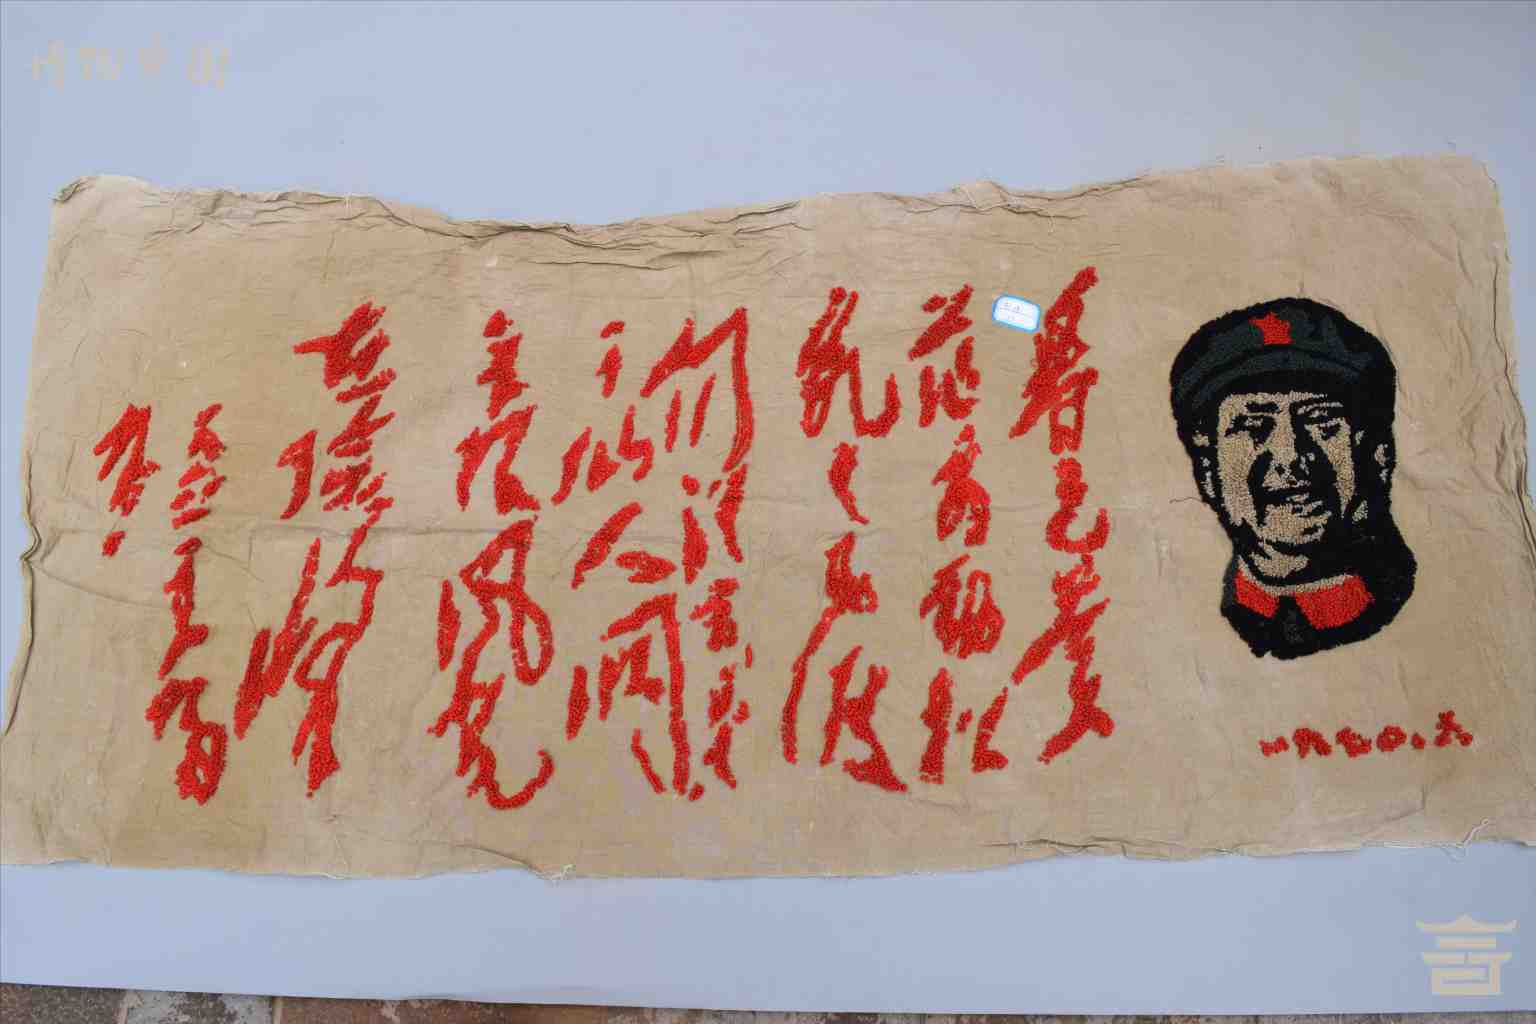 博物中国
暮色苍
茫看劲松
乱云飞渡
仍从容天生一
个仙人洞
无限风光
在险峰
一九七〇.六